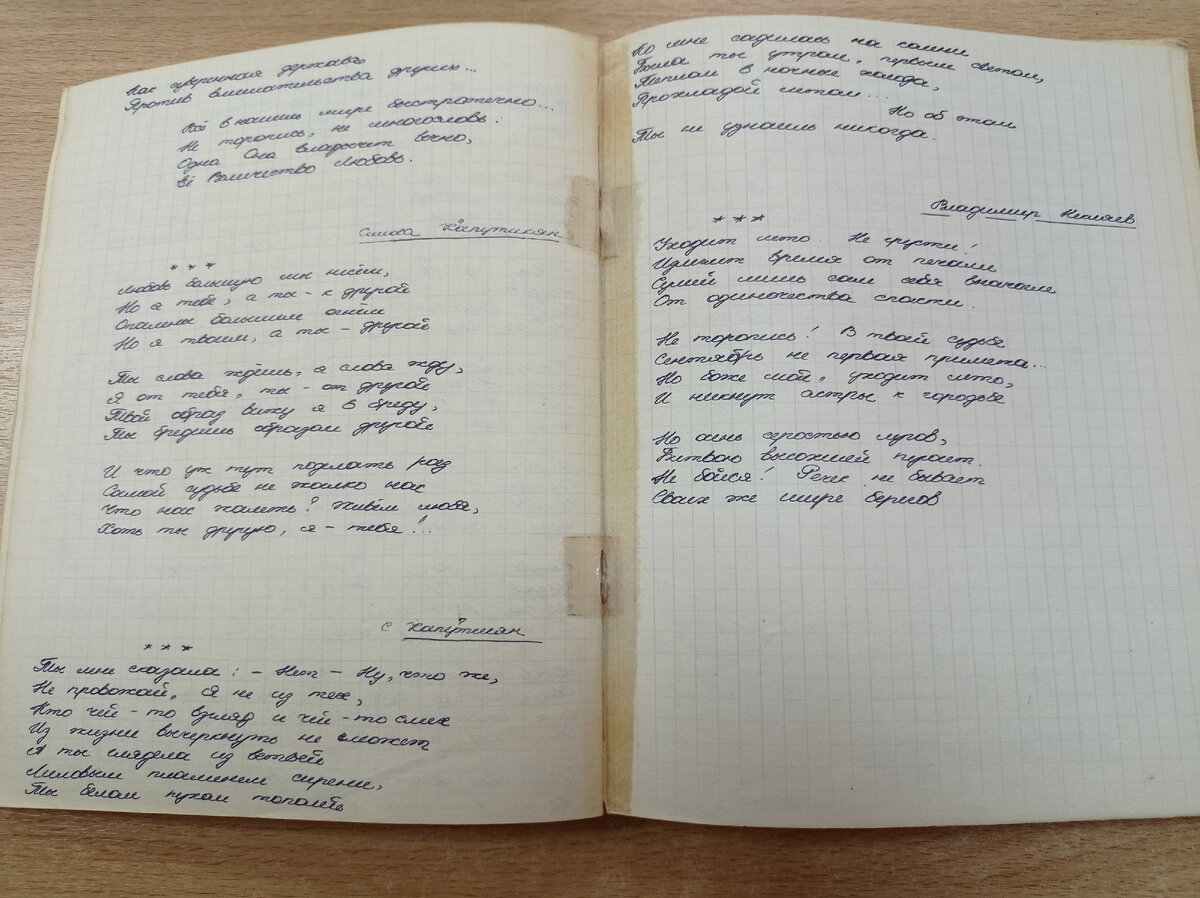 Как суверенная держава
Против вмешательства других...
Всё в нашем мире быстротечно...
Не торопись, не многословь:
Одна Она владычит вечно,
Её Величество Любовь.
Сильва Капутикян
***
Любовь большую мы несём,
Но я тебе, а ты - к другой
Опалены большим огнём
Но я твоим, а ты - другой
Ты слова ждёшь, я слова жду,
Я от тебя, ты - от другой
Твой образ вижу я в бреду,
Ты бредишь образом другой
И что уж тут поделать раз
Самой судьбе не жалко нас
Что нас жалеть? Живём любя,
Хоть ты другую, я - тебя!..
С Капутикян
***
Ты мне сказала: - Нет - Ну, что же,
Не провожай, Я не из тех,
Кто чей-то взгляд и чей-то смех
Из жизни вычеркнуть не сможет
А ты глядела из ветвей
Лиловым пламенем сирени,
Ты белым пухом тополей
Ко мне садилась на колени
Была ты утром, первым светом,
Теплом в ночные холода,
Прохладой летом...
Но об этом
Ты не узнаешь никогда.
Владимир Некляев
***
Уходит лето... Не грусти!
Излечит время от печали
Сумей лишь сам себя вначале
От одиночества спасти.
Не торопись! В твоей судьбе
Сентябрь не первая примета...
Но боже мой, уходит лето,
И никнут астры к городьбе
Но осень серостью лугов,
высохшей пугает.
Не бойся! Рек не бывает
Своих же шире берегов